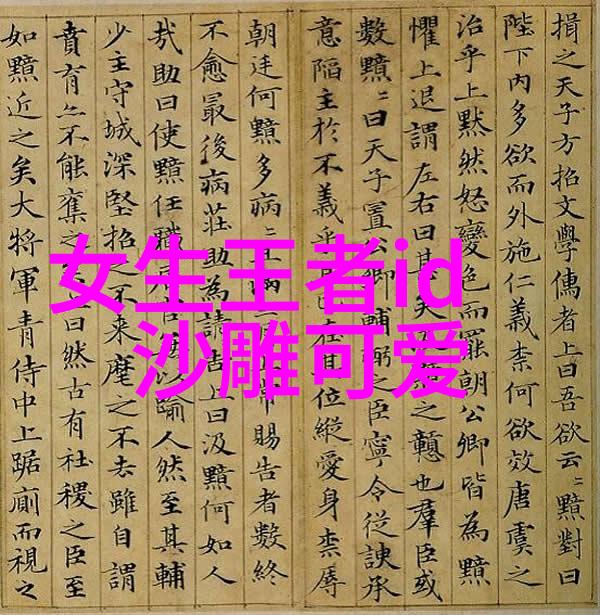 揖之天子方招文學儒者上曰吾欲云〻黯對曰
陛下內多欲而外施仁義柰何欲效唐虞之
治乎上黙然怒變色而罷朝公卿皆為黯
懼上退謂左右曰甚矣之戇也羣臣或
數黯〻曰天子置公卿輔弼之臣寧令従諛承
意陷主於不義乎且已在其位縱愛身柰辱
朝廷何黯多病〻且滿三常賜告者數終
不愈最後病莊助為請告曰汲黯何如人
㢤助曰使黯任職居官以踰人然至其輔
少主守城深堅招之不来麾之不去雖自謂
賁育亦不能奪之曰然古有社稷之臣至
如黯近之矣大將軍青侍中上踞廁而視之
女生王者id
沙雕可爱